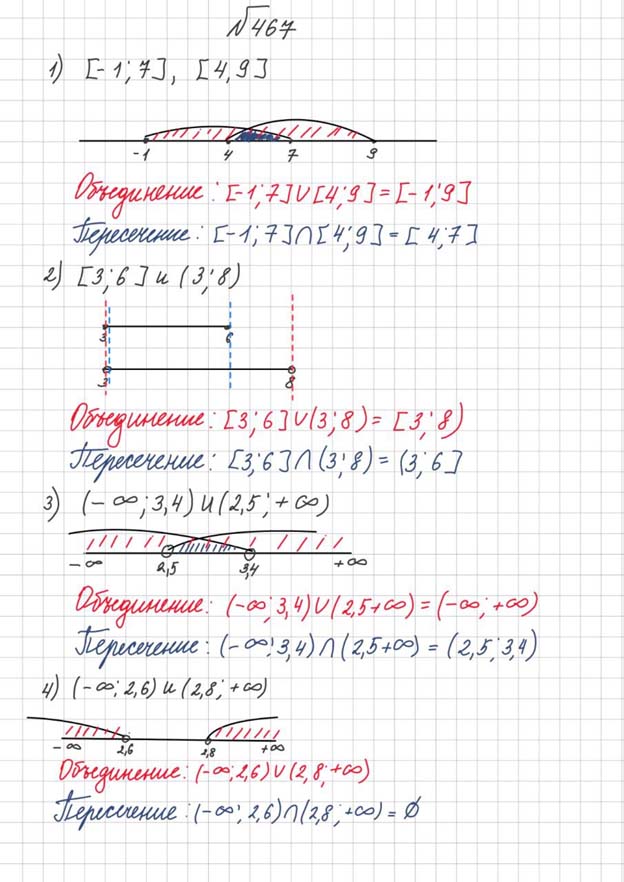 №467
1) [-1; 7], [4; 9]
-1 4 7 9
Объединение: [-1; 7]∪[4; 9] = [-1; 9]
Пересечение: [-1; 7]∩[4; 9] = [4; 7]
2) [3; 6] и (3; 8)
3 6
3 8
Объединение: [3; 6]∪(3; 8) = [3; 8)
Пересечение: [3; 6]∩(3; 8) = (3; 6]
3) (-∞; 3,4) и (2,5; +∞)
-∞ 2,5 3,4 +∞
Объединение: (-∞; 3,4)∪(2,5+∞) = (-∞; +∞)
Пересечение: (-∞; 3,4)∩(2,5+∞) = (2,5; 3,4)
4) (-∞; 2,6) и (2,8; +∞)
-∞ 2,6 2,8 +∞
Объединение: (-∞; 2,6)∪(2,8; +∞)
Пересечение: (-∞; 2,6)∩(2,8; +∞) = ∅